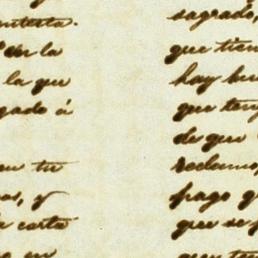 en la
la que
gado á
en tu
y
carta
en
sagrado,
que tien
hay
que ten
de que
reclamo,
pago q
que se